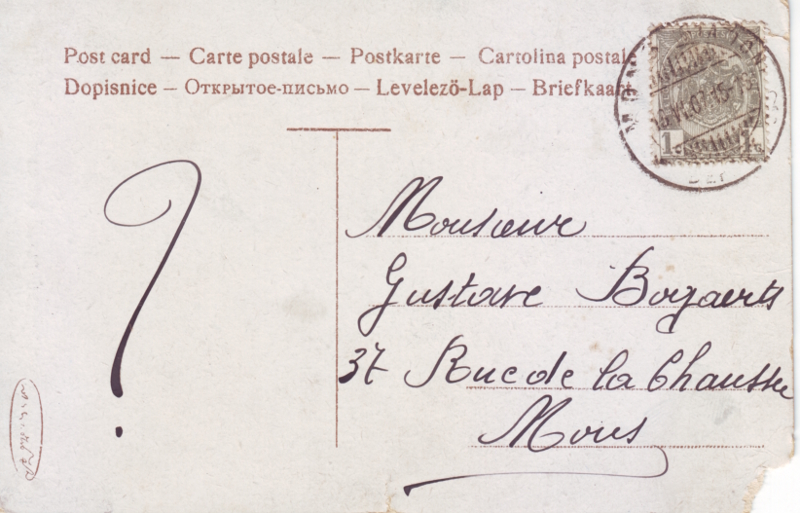 Post card — Carte postale — Postkarte — Cartolina postale
Dopisnice — Открытое-письмо — Levelező-Lap — Briefkaart
?
Monsieur
Gustave Bogaerts
37 Rue de la Chaussée
Mons